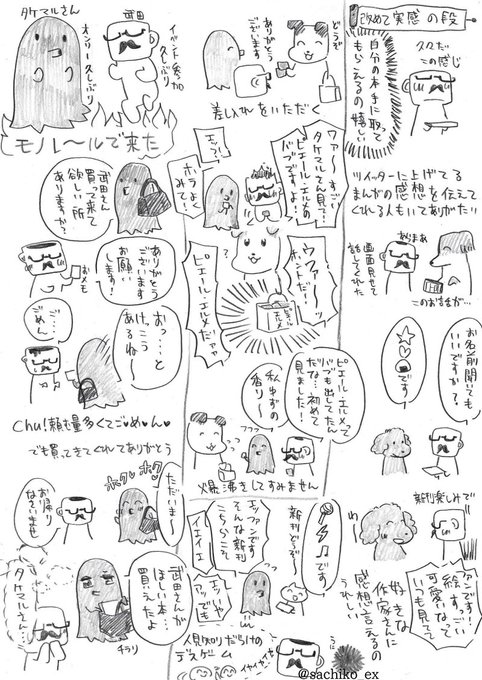 改めて実感の段
久々だ
この感じ
自分の本手に取って
もらえるの嬉しい
ツイッターに上げてる
まんがの感想を伝えて
くれる人もいてありがたい
あらまあ
画面見せて
話してくれた
このお話が…
お名前聞いても
いいですか?
☆♡です
新刊楽しみで
ファンです!
絵すっごい
可愛いなって
いつも見てて
好きな
作家さんに
感想言えるの
うれしい
どうぞ
ありがとう
ございます
差し入れをいただく
ワァ〜すごい
タケマルさん見て!
ピエール・エルメの
バブですよ!
エッ?!
ホラよく
みて!
ウワァ〜ッ
ホントだ!
ピエール・エルメだァァ
ピエール
エルメ
ピエール・エルメって
バブも出してたん
だな…初めて
見ました!
私ゆずの
香り〜
フフフ
爆沸きしてすみません
です
新刊どうぞ
エッファンです
そんな新刊
こちらこそ
イエイエ
エッいや
アッでも
人見知りだらけの
デスゲーム
イヤイヤイヤ
うに
タケマルさん
オンリー久しぶり
武田
イベント参加
久しぶり
モノレ〜ルで来た
武田さん
買って来て
欲しい所
ありますか?
ありがとう
ございます
お願い
します!
おメモ
おっ…と
けっこう
あるね〜
ごめ…
ごめん…
Chu!頼む量多くてごめ♥ん♥
でも買ってきてくれてありがとう
ホク♥ホク♥
ただいま〜
お帰り
なさいませ
武田さんが
ほしい本…
買えたよ
チラリ
タケマルさん…
@sachiko_ex